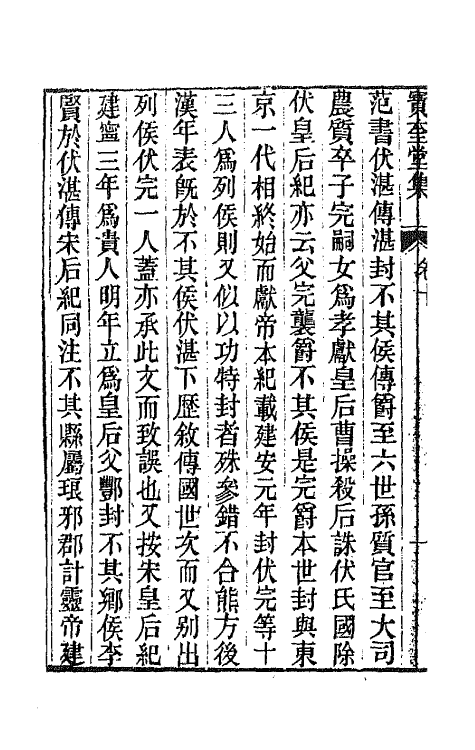 寶奎堂集
范書伏湛傳湛封不其侯傳爵至六世孫質官至大司
農質卒子完嗣女爲孝獻皇后曹操殺后誅伏氏國除
伏皇后紀亦云父完襲爵不其侯是完爵本世封與東
京一代相終始而獻帝本紀載建安元年封伏完等十
三人爲列侯則又似以功特封者殊參錯不合熊方後
漢年表旣於不其侯伏湛下歷敘傳國世次而又別出
列侯伏完一人蓋亦承此文而致誤也又按宋皇后紀
建寧三年爲貴人明年立爲皇后父酆封不其鄉侯李
賢於伏湛傳宋后紀同注不其縣屬琅邪郡計靈帝建